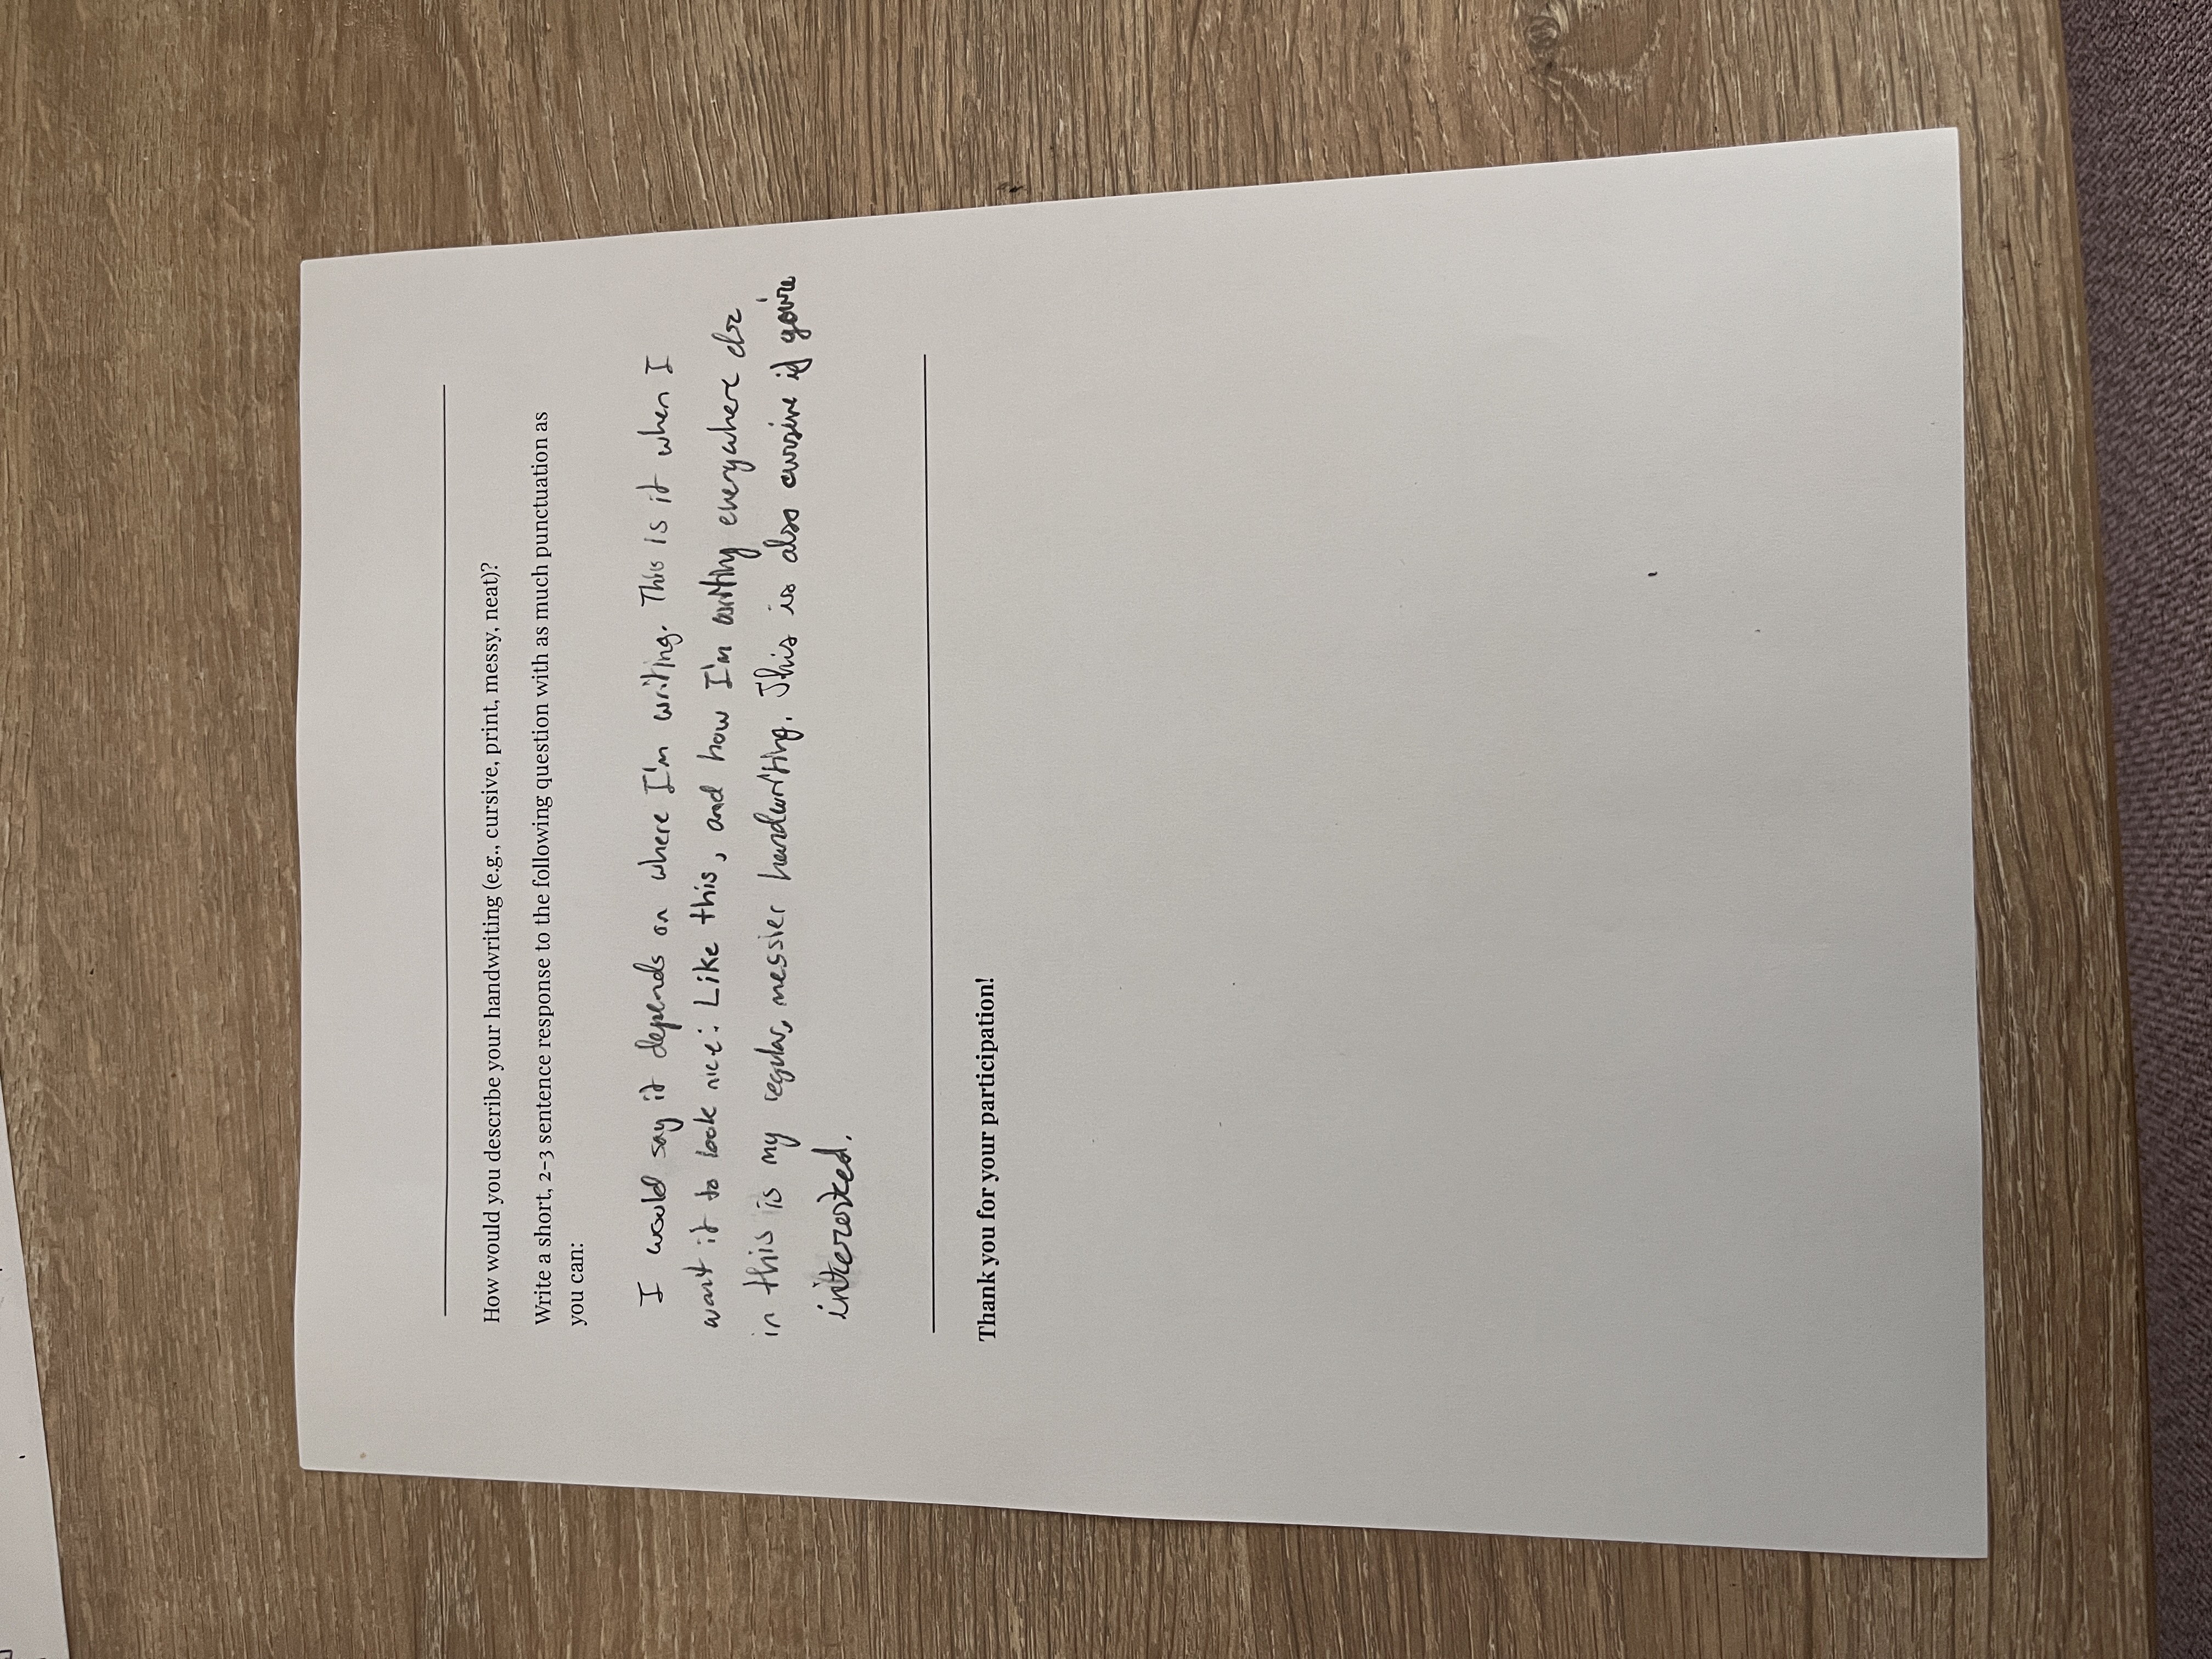 How would you describe your handwriting (e.g., cursive, print, messy, neat)?
Write a short, 2-3 sentence response to the following question with as much punctuation as
you can:
I would say it depends on where I'm writing. This is it when I
want it to look nice: Like this, and how I'm writing everywhere else
in this is my regular, messier handwriting. This is also cursive if you're
interested.
Thank you for your participation!